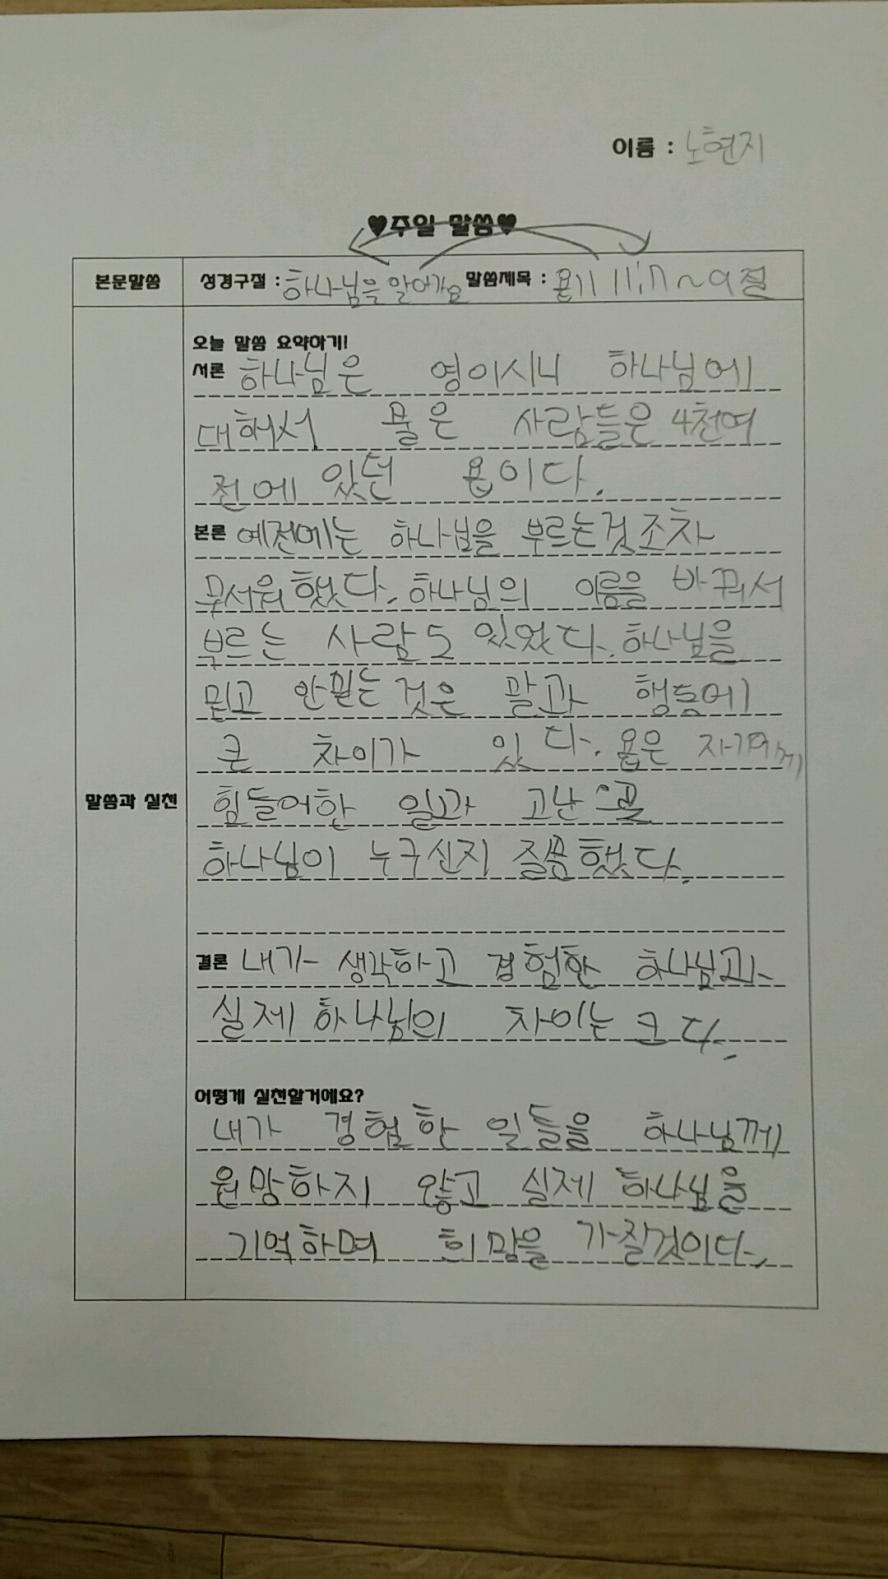 이름 : 노현지
♥주일 말씀♥
본문말씀 성경구절 : 하나님을 알아가요 말씀제목 : 욥기 11:7~9절
오늘 말씀 요약하기!
서론 하나님은 영이시니 하나님에
대해서 물은 사람들은 4천여
전에 있던 욥이다.
본론 예전에는 하나님을 부르는것조차
무서워했다. 하나님의 이름을 바꿔서
부르는 사람도 있었다. 하나님을
믿고 안믿는 것은 말과 행동에
큰 차이가 있다. 욥은 자기에게
힘들어한 일과 고난
하나님이 누구신지 질문했다.
말씀과 실천
결론 내가 생각하고 경험한 하나님과
실제 하나님의 차이는 크다.
어떻게 실천할거에요?
내가 경험한 일들을 하나님께
원망하지 않고 실제 하나님을
기억하며 희망을 가질것이다.